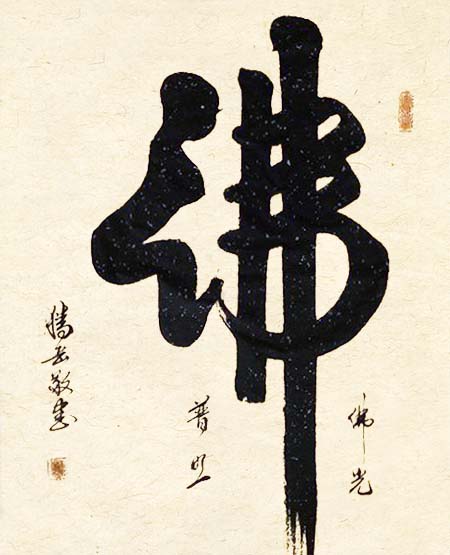 佛
佛光
普照
敬書